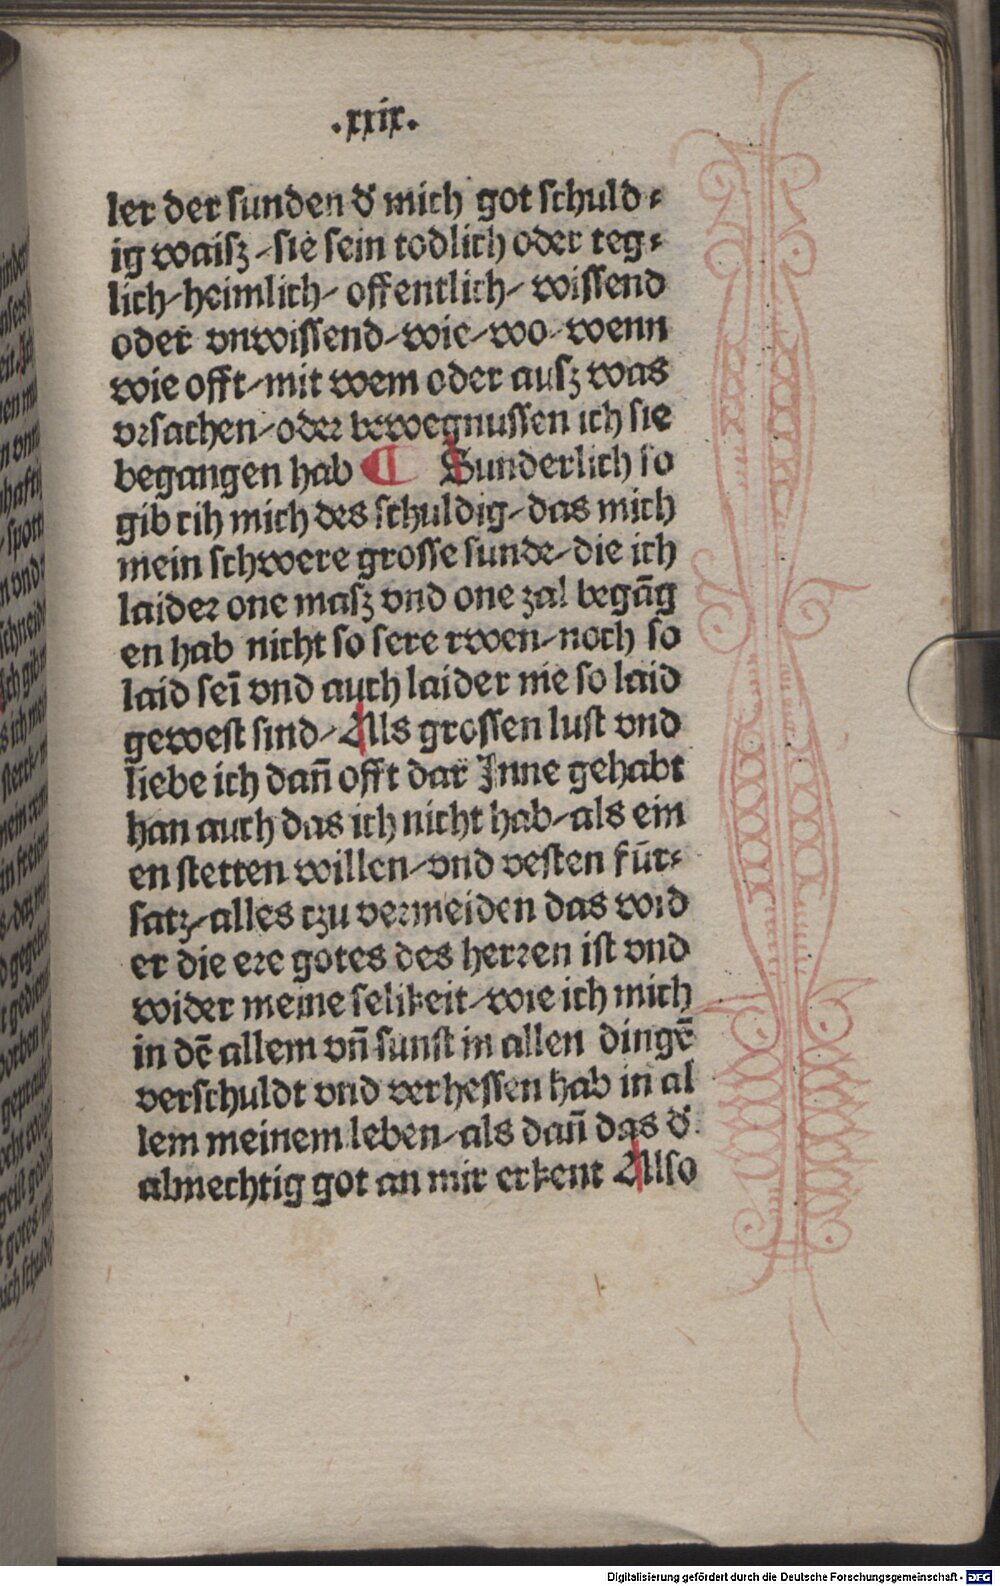 .xxix.
ler der sunden d᷑ mich got schuld⸗
ig waisz/sie sein todlich oder teg⸗
lich/heimlich/ offentlich/ wissend
oder vnwissend/wie/wo/wenn
wie offt/mit wem oder ausz was
vꝛsachen/odeꝛ bewegnussen ich sie
begangen hab ¶ Sunderlich so
gib cih mich des schuldig/das mich
mein schwere grosse sunde/die ich
laideꝛ one masz vnd one zal begāg
en hab nicht so sere rwen/noch so
laid seī vnd auch laider nie so laid
gewest sind/Als grossen lust vnd
liebe ich dan̄ offt dar Inne gehabt
han auch das ich nicht hab/als ein
en stetten willen/vnd vesten fūr⸗
satz/alles czu veꝛmeiden das wid
er die eꝛe gotes des herꝛen ist vnd
wider meine selikeit/wie ich mich
in dē allem vn̄ sunst in allen dingē
verschuldt vnd verhessen hab in al
lem meinem leben/als dan̄ das d᷑
almechtig got an mir erkent Also
Digitalisierung gefördert durch die Deutsche Forschungsgemeinschaft - DFG